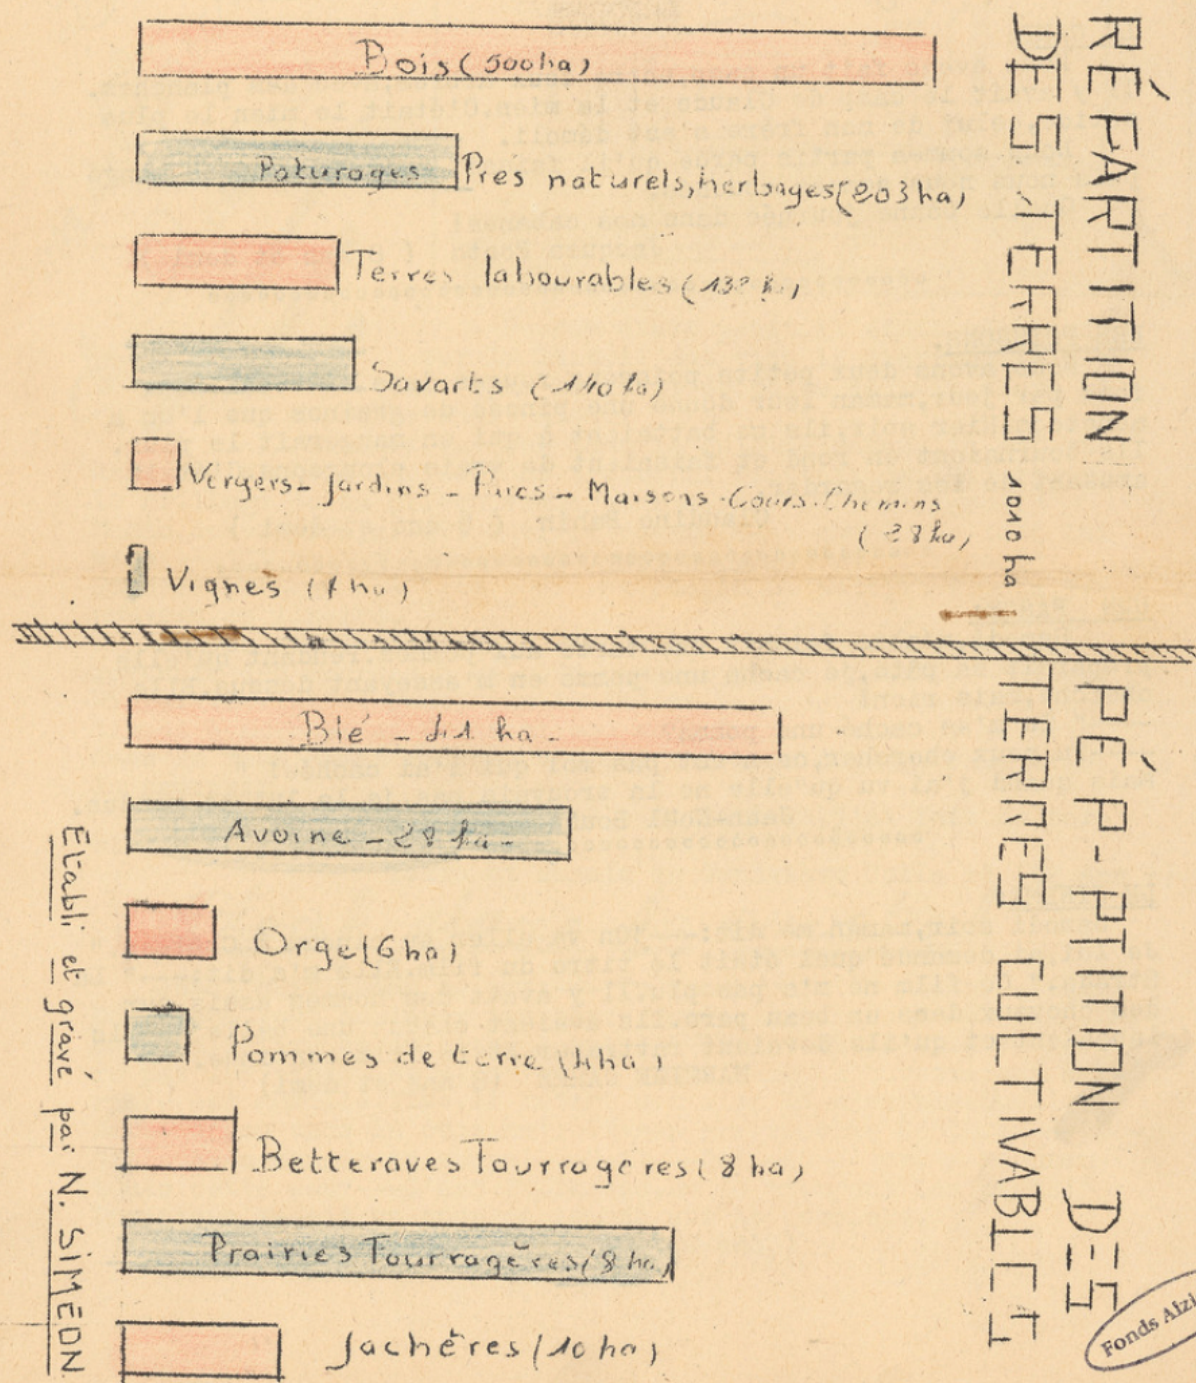 RÉPARTITION
DES TERRES 1010 ha
Bois (500 ha)
Paturages Prés naturels, herbages (203 ha)
Terres labourables (130 h)
Savarts (140 ha)
Vergers - Jardins - Parcs - Maisons - Cours - Chemins
(28 ha)
Vignes
DES
TERRES CULTIVABLES
Blé - 41 ha -
Avoine - 28 ha -
Orge (6 ha)
Pommes de terre (4 ha)
Betteraves Fourragères (8 ha)
Prairies Fourragères
Jachères (10 ha)
Etabli et gravé par N. SIMEON
Fonds